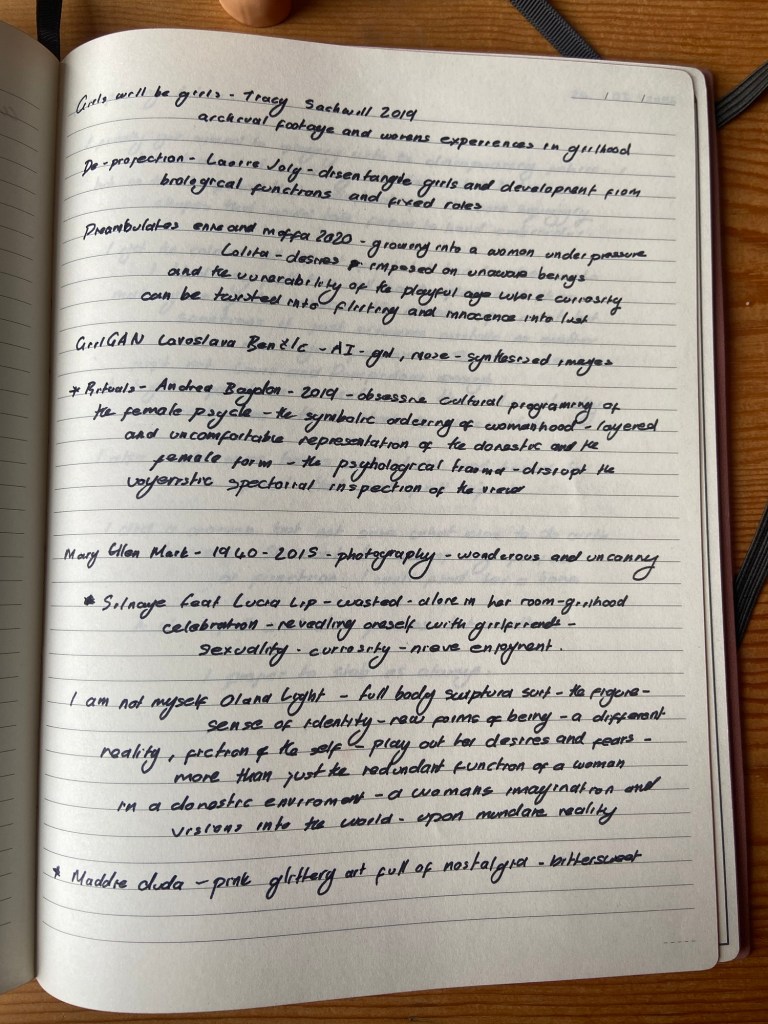 Girls will be girls - Tracy Sachwill 2019
archival footage and womens experiences in girlhood
De-projection - Laoire Joly - disentangle girls and development from
biological functions and fixed roles
Preambulates enne and moffa 2020 - growing into a woman under pressure
Lolita - desires imposed on unaware beings
and the vunarability of the playful age where curiosity
can be twisted into flirting and innocence into lust
GirlGAN Lavoslava Benčić - AI - girl, nose - synthesized images
* Rituals - Andrea Bagdon - 2019 - obsessive cultural programing of
the female psycle - the symbolic ordering of womanhood - layered
and uncomfortable representation of the domestic and the
female form - the psychological trauma - disrupt the
voyeristic spectorial inspection of the viewer
Mary Ellen Mark - 1940 - 2015 - photography - wonderous and uncanny
* Solnaye feat Lucia Lip - wasted - alone in her room - girlhood
celebration - revealing oneself with girlfriends -
sexuality - curiosity - nieve enjoyment.
I am not myself Olana Light - full body sculptural suit - the figure -
sense of identity - new forms of being - a different
reality, fiction of the self - play out her desires and fears -
more than just the redundant function of a woman
in a domestic enviroment - a womans imagination and
visions into the world - upon mundane reality
* Maddie duda - pink glittery art full of nostalgia - bittersweet